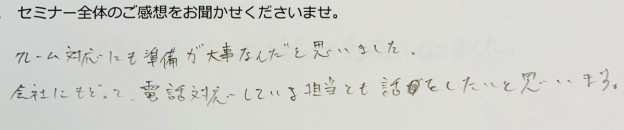 セミナー全体のご感想をお聞かせくださいませ。
クレーム対応にも準備が大事なんだと思いました。
会社にもどって、電話対応している担当とも話をしたいと思います。